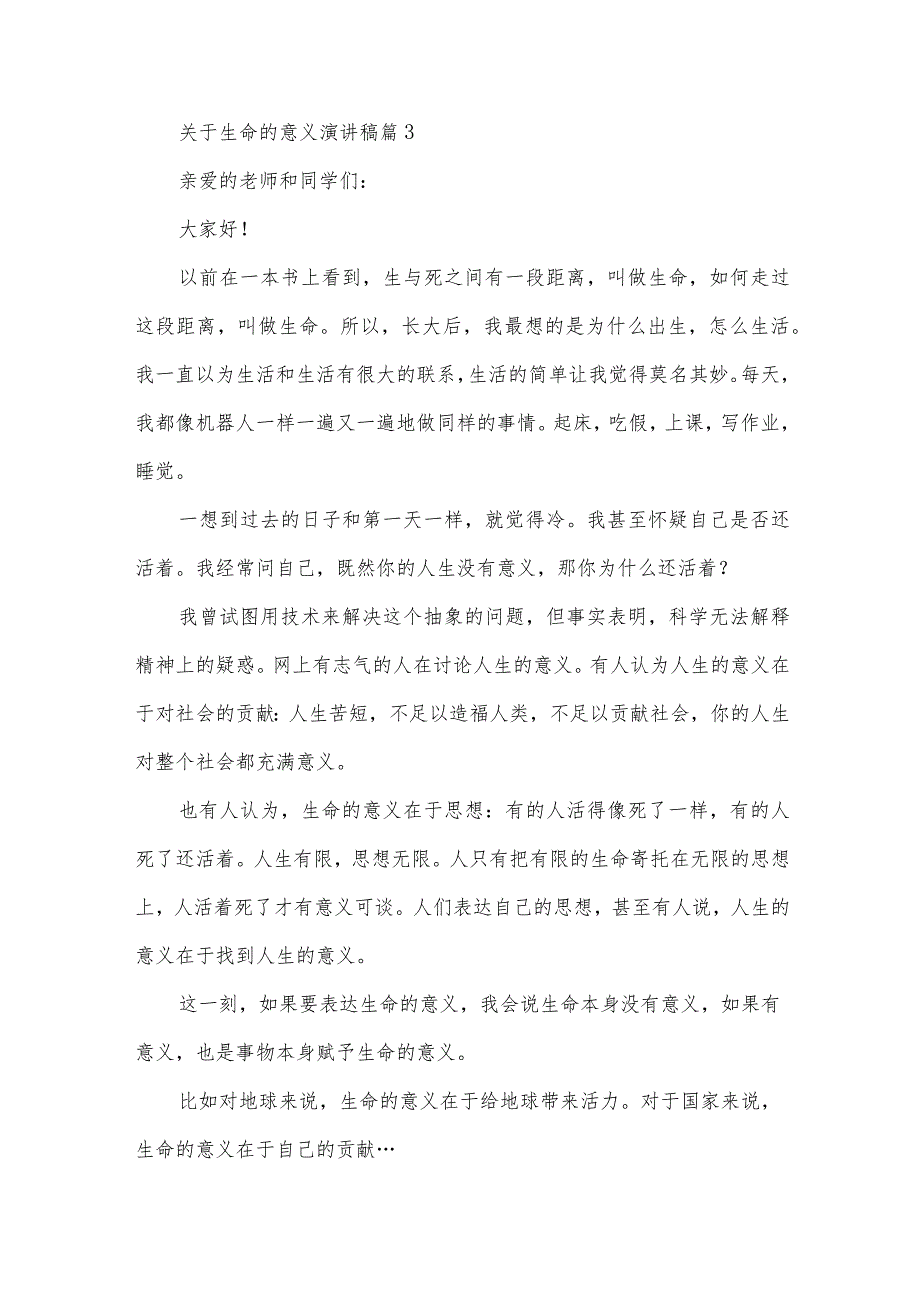 关于生命的意义演讲稿篇3
亲爱的老师和同学们：
大家好！
以前在一本书上看到，生与死之间有一段距离，叫做生命，如何走过
这段距离，叫做生命。所以，长大后，我最想的是为什么出生，怎么生活。
我一直以为生活和生活有很大的联系，生活的简单让我觉得莫名其妙。每天，
我都像机器人一样一遍又一遍地做同样的事情。起床，吃假，上课，写作业，
睡觉。
一想到过去的日子和第一天一样，就觉得冷。我甚至怀疑自己是否还
活着。我经常问自己，既然你的人生没有意义，那你为什么还活着？
我曾试图用技术来解决这个抽象的问题，但事实表明，科学无法解释
精神上的疑惑。网上有志气的人在讨论人生的意义。有人认为人生的意义在
于对社会的贡献：人生苦短，不足以造福人类，不足以贡献社会，你的人生
对整个社会都充满意义。
也有人认为，生命的意义在于思想：有的人活得像死了一样，有的人
死了还活着。人生有限，思想无限。人只有把有限的生命寄托在无限的思想
上，人活着死了才有意义可谈。人们表达自己的思想，甚至有人说，人生的
意义在于找到人生的意义。
这一刻，如果要表达生命的意义，我会说生命本身没有意义，如果有
意义，也是事物本身赋予生命的意义。
比如对地球来说，生命的意义在于给地球带来活力。对于国家来说，
生命的意义在于自己的贡献…